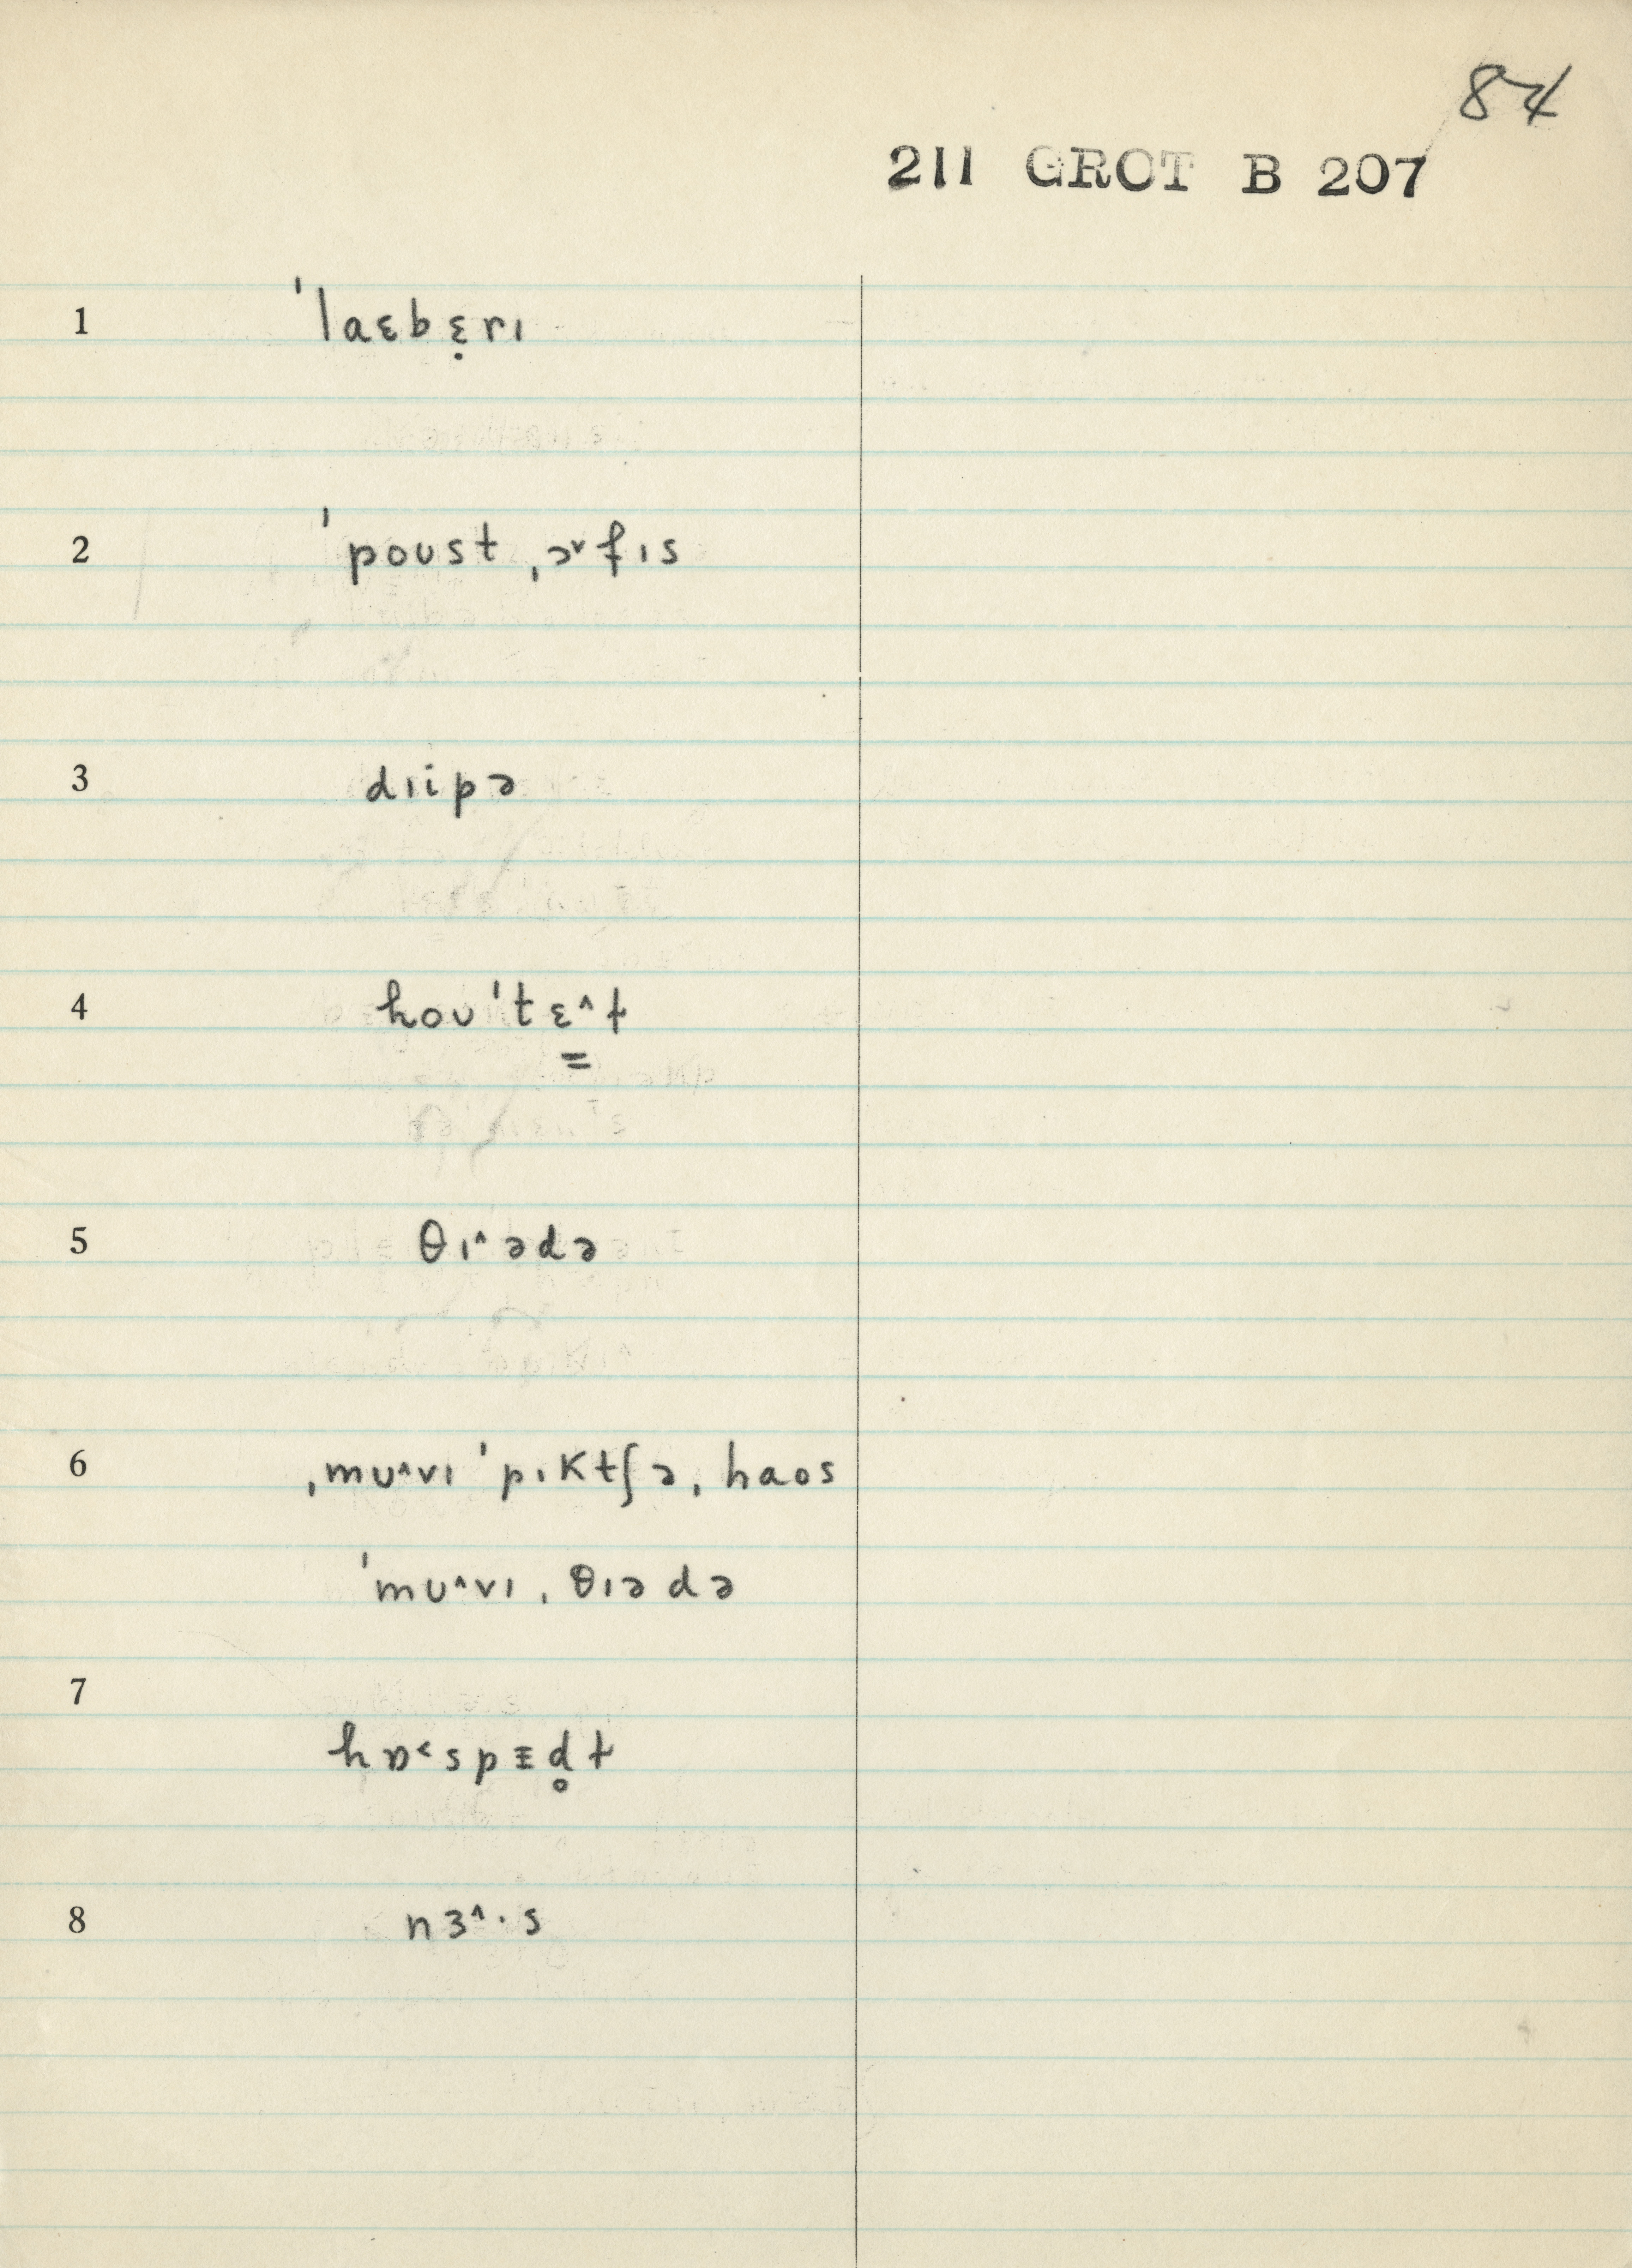 84
211 GROT B 207
1 ˈlaɛbɛ̣rɪ
2 ˈpoʊst ˌɔ˅fɪs
3 dɪipə
4 hoʊˈtɛ˄ɫ
5 θɪ˄ədə
6 ˌmʊ˄vɪ ˈpɪktʃəˌhaos
ˈmʊ˄vɪˌθɪədə
7 hɒ˂spᵻd̥ɫ
8 nɜ˄·s